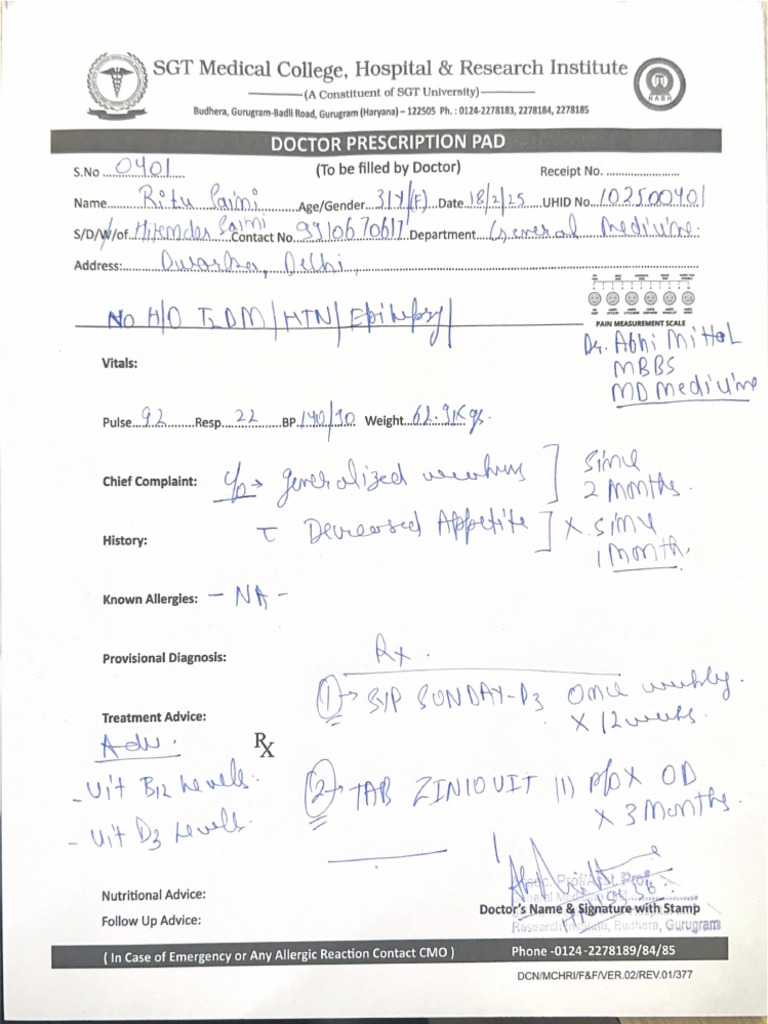 SGT Medical College, Hospital & Research Institute
(A Constituent of SGT University)
NABH
Budhera, Gurugram-Badli Road, Gurugram (Haryana) – 122505 Ph. : 0124-2278183, 2278184, 2278185
DOCTOR PRESCRIPTION PAD
S.No 0401 (To be filled by Doctor) Receipt No.
Name Ritu Saini Age/Gender 31Y/(F) Date 18/2/25 UHID No. 102500401
S/D/W/of Hitender Saini Contact No. 9910670617 Department General Medicine.
Address: Dwarka, Delhi,
No H/O T2DM/HTN/Epilepsy/
PAIN MEASUREMENT SCALE
Dr. Abhi Mittal
MBBS
MD Medicine
Vitals:
Pulse 92 Resp. 22 BP 140/90 Weight 62.9Kgs.
Chief Complaint: C/o → generalized weakness ] Since
2 Months.
History: Decreased Appetite ] X Since
1 Month.
Known Allergies: - NA -
Provisional Diagnosis: Rx.
① → SYP SUNDAY-D3 Once weekly.
X 12 weeks.
Treatment Advice:
Adv. Rx
- Vit B12 Levels.
- Vit D3 Levels.
② → TAB ZINIOVIT (1) p/o X OD
X 3 Months.
Nutritional Advice:
Doctor's Name & Signature with Stamp
Follow Up Advice:
Research Institute, Budhera, Gurugram
( In Case of Emergency or Any Allergic Reaction Contact CMO ) Phone -0124-2278189/84/85
DCN/MCHRI/F&F/VER.02/REV.01/377